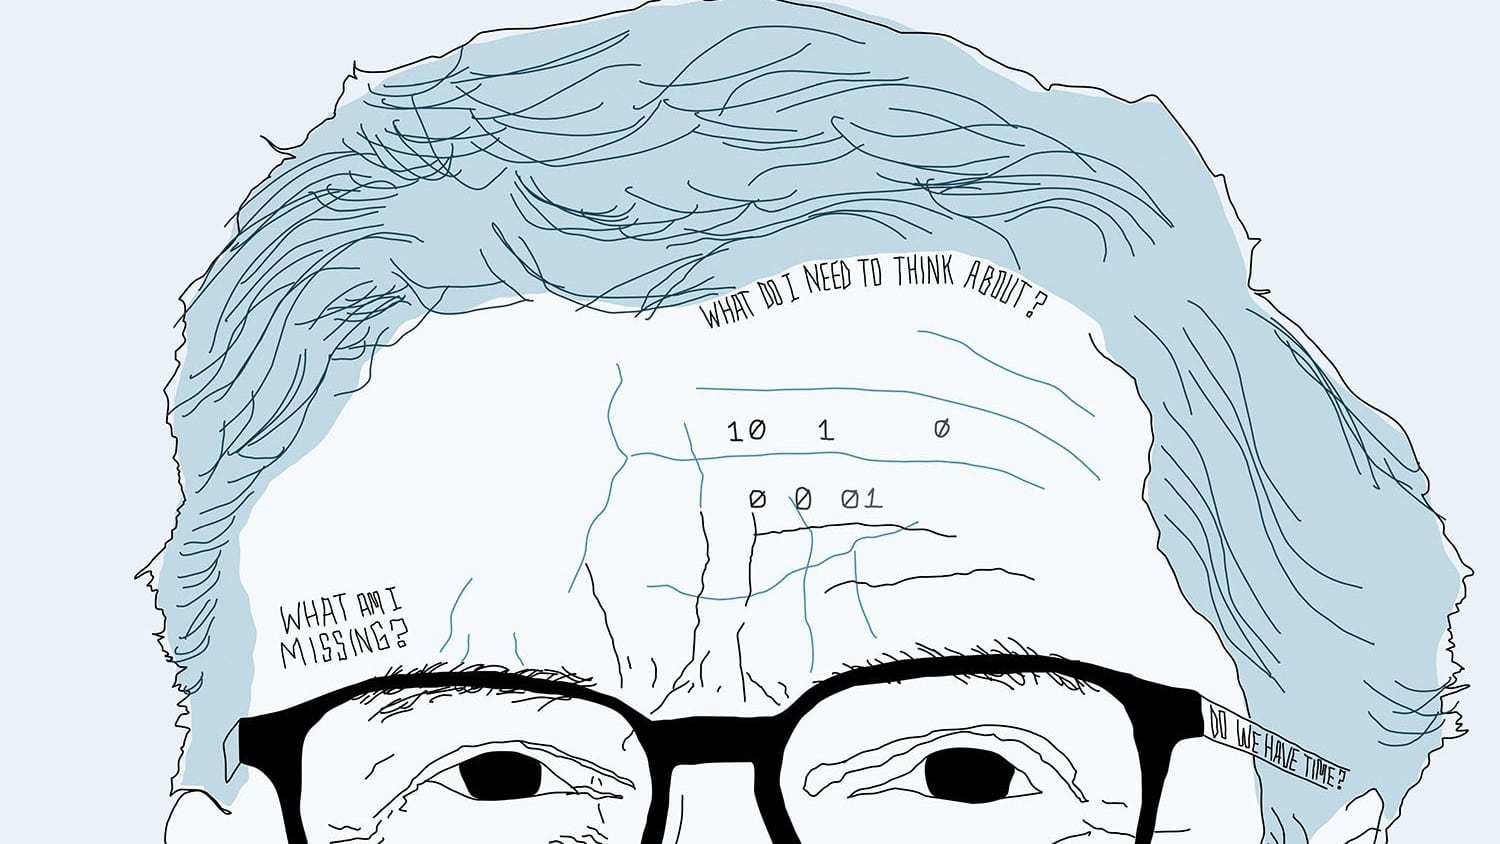 WHAT DO I NEED TO THINK ABOUT?
10 1 0
0 0 01
WHAT AM I
MISSING?
DO WE HAVE TIME?